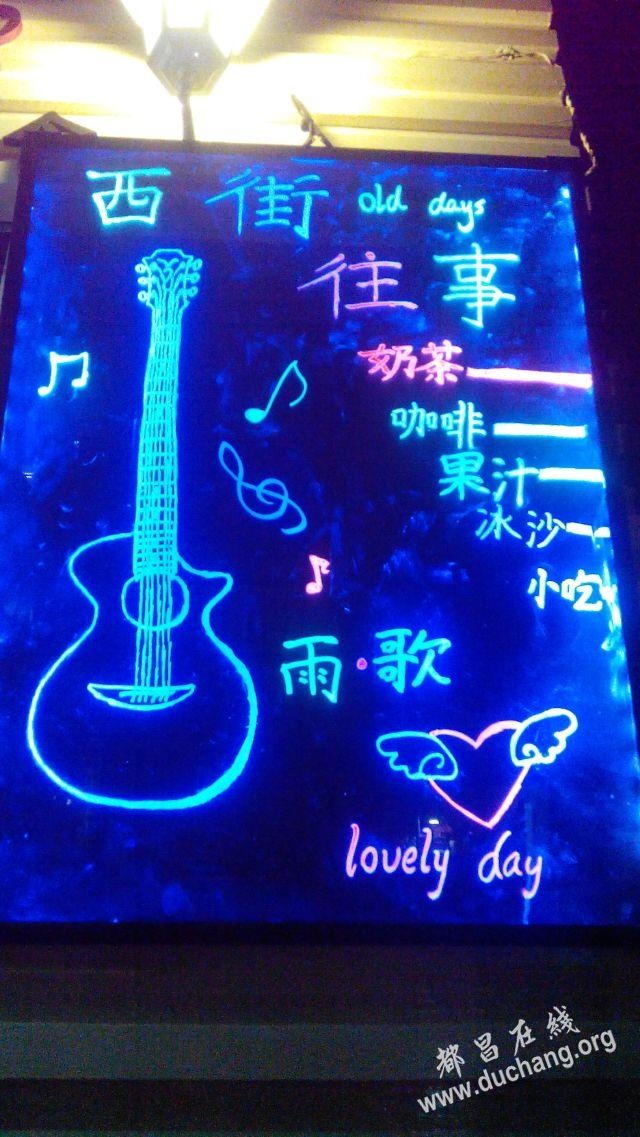 西街 old days
往事
奶茶
咖啡
果汁
冰沙
小吃
雨·歌
lovely day
都昌在綫
www.duchang.org